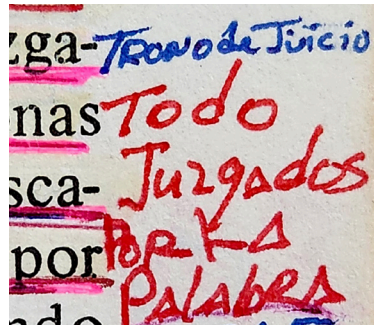 zga- Trono de Juicio
nas Todo
sca- Juzgados
por Por La
ndo Palabra